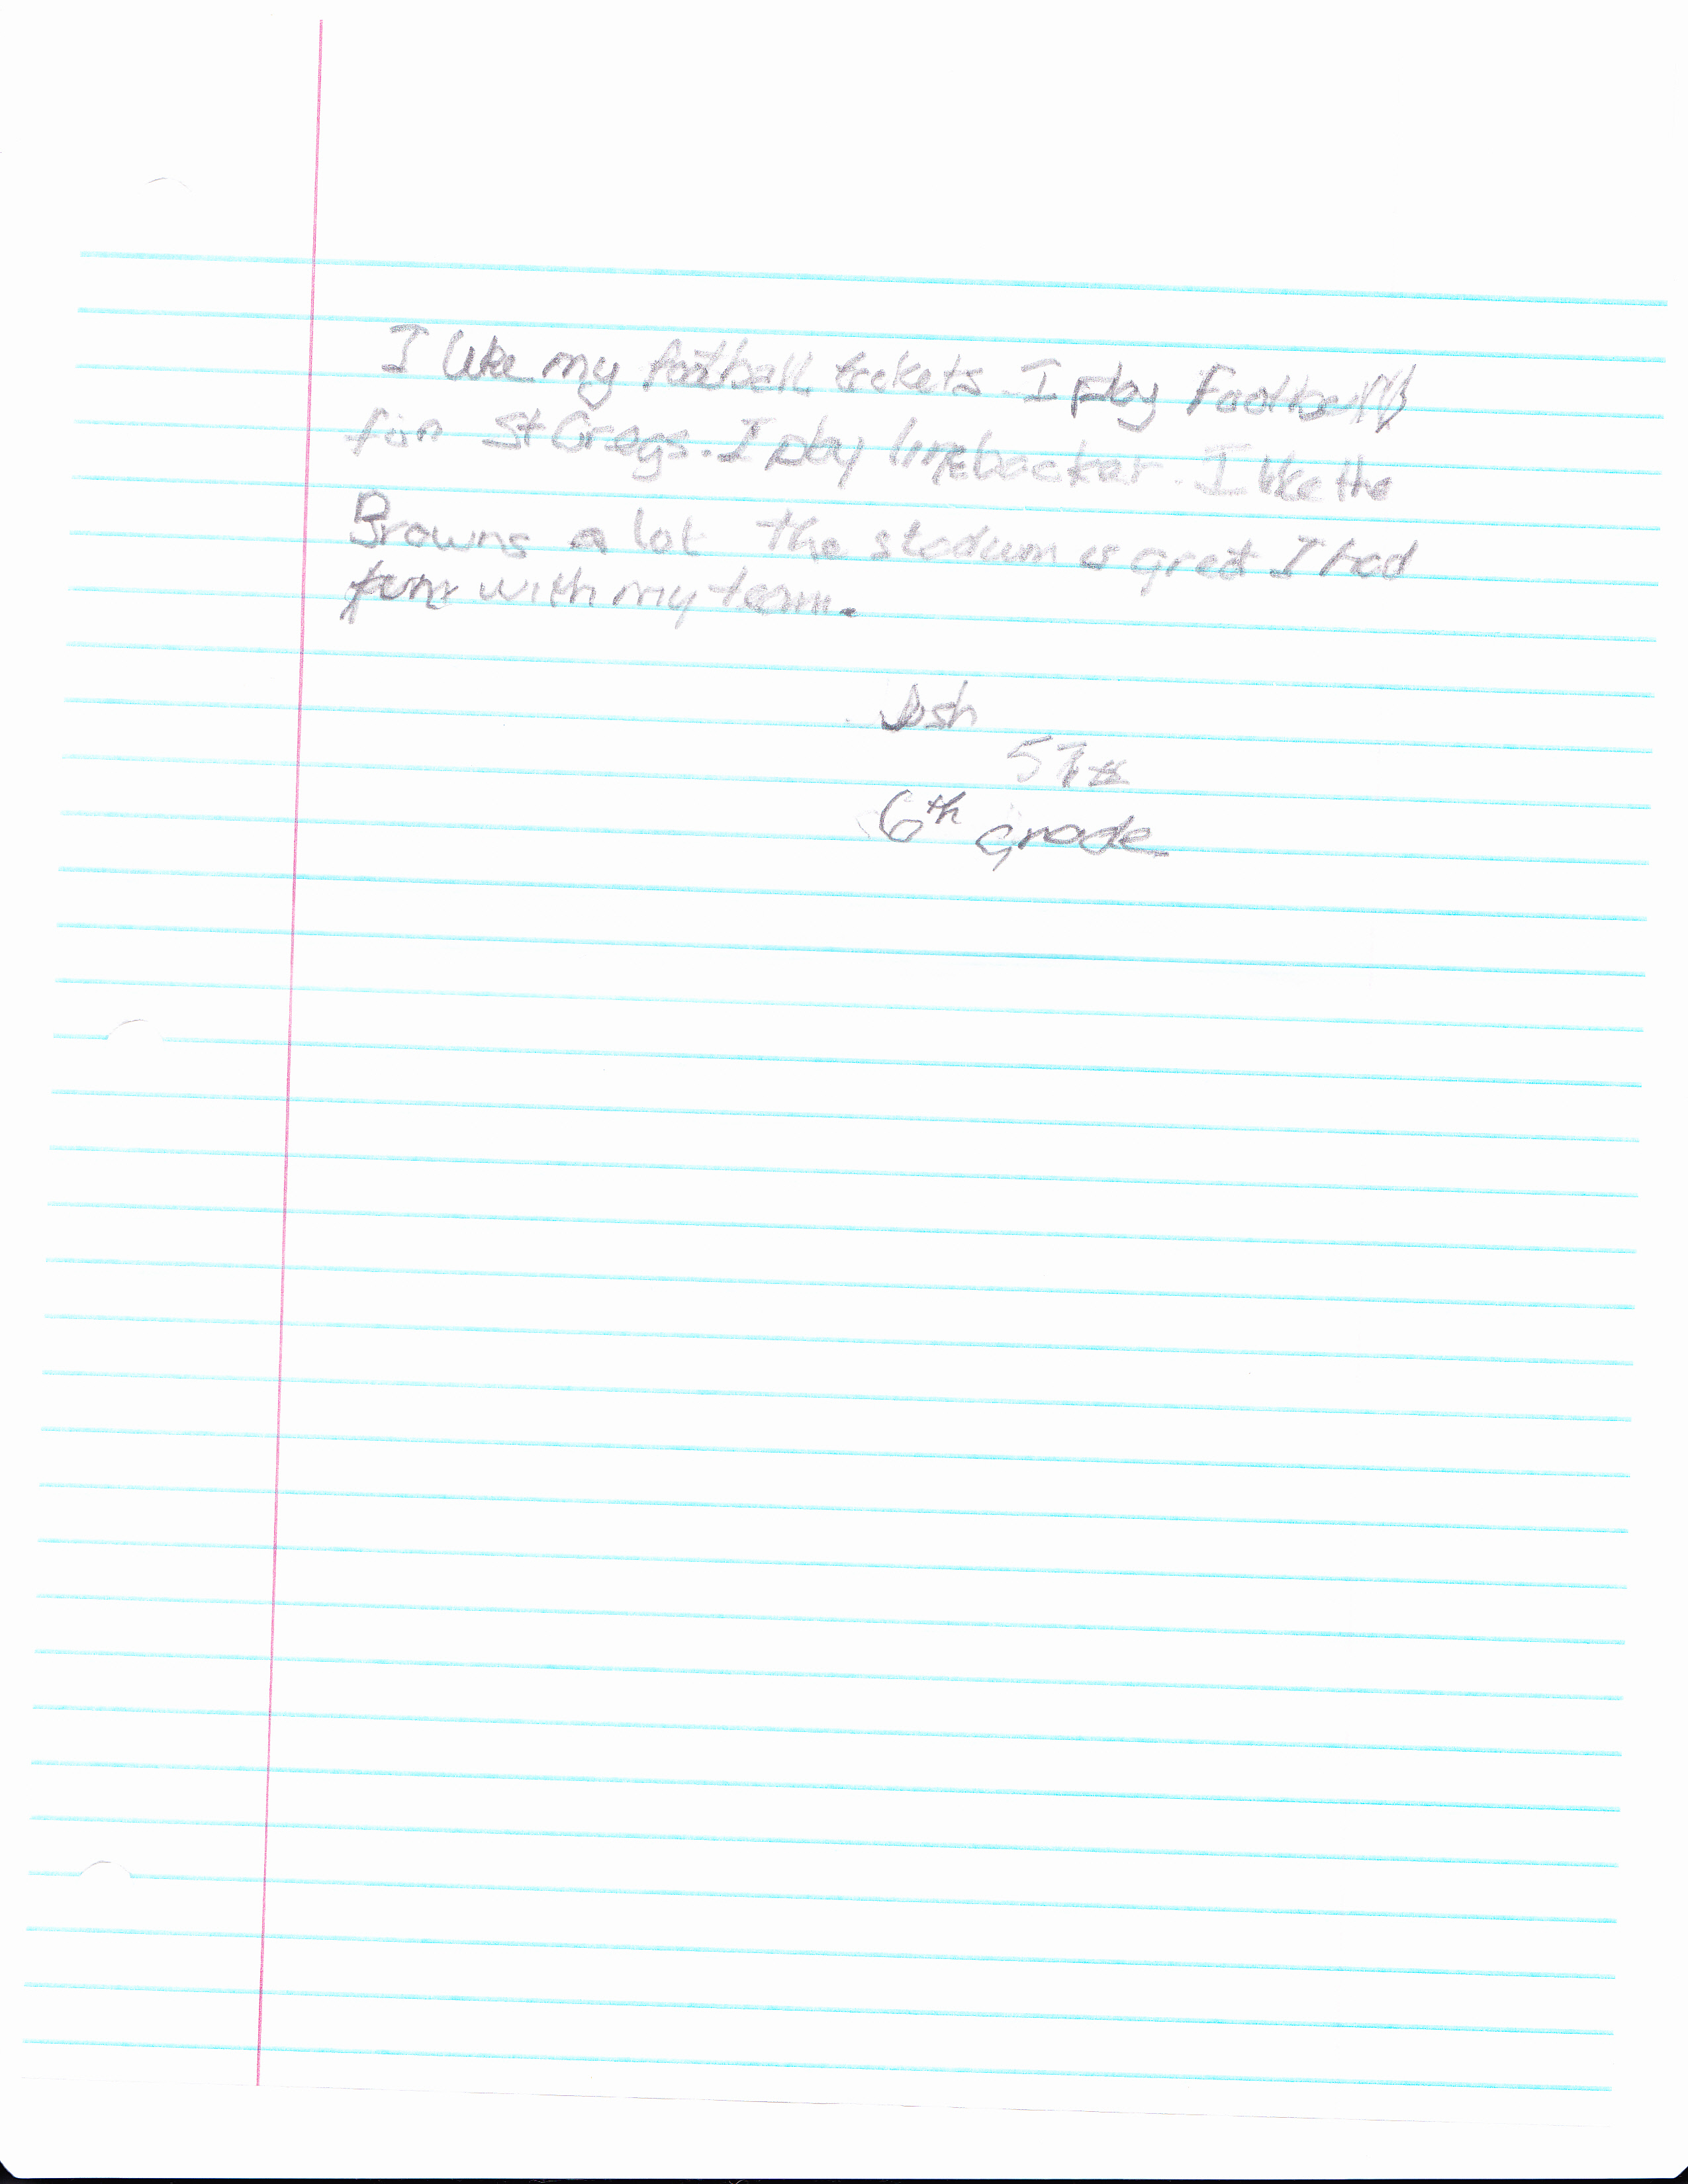 I like my football tickets I play Football
for St Gregs. I play linebacker. I like the
Browns a lot the stadium is great I had
fun with my team.
Josh
57#
6th grade